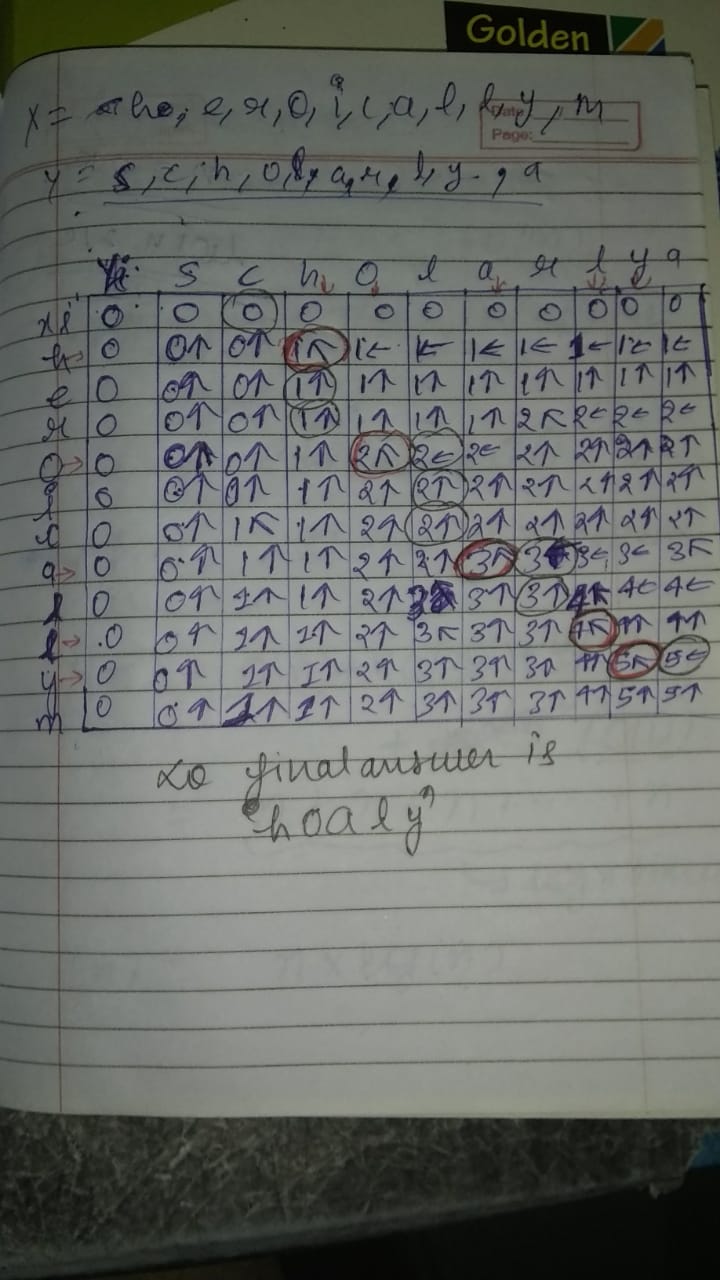 Golden
X = h, e, r, O, i, c, a, l, l, y, m
Date:
Page:
y = s, c, h, o, l, a, r, l, y, a
yi S C h O l a r l y a
xi 0 0 0 0 0 0 0 0 0 0 0
h 0 0↑ 0↑ 1↖ 1← 1← 1← 1← 1← 1← 1←
e 0 0↑ 0↑ 1↑ 1↑ 1↑ 1↑ 1↑ 1↑ 1↑ 1↑
r 0 0↑ 0↑ 1↑ 1↑ 1↑ 1↑ 2↖ 2← 2← 2←
O 0 0↑ 0↑ 1↑ 2↖ 2← 2← 2↑ 2↑ 2↑ 2↑
i 0 0↑ 0↑ 1↑ 2↑ 2↑ 2↑ 2↑ 2↑ 2↑ 2↑
c 0 0↑ 1↖ 1↑ 2↑ 2↑ 2↑ 2↑ 2↑ 2↑ 2↑
a 0 0↑ 1↑ 1↑ 2↑ 2↑ 3↖ 3← 3← 3← 3↖
l 0 0↑ 1↑ 1↑ 2↑ 3↖ 3↑ 3↑ 4↖ 4← 4←
l 0 0↑ 1↑ 1↑ 2↑ 3↖ 3↑ 3↑ 4↖ 4↑ 4↑
y 0 0↑ 1↑ 1↑ 2↑ 3↑ 3↑ 3↑ 4↑ 5↖ 5←
m 0 0↑ 1↑ 1↑ 2↑ 3↑ 3↑ 3↑ 4↑ 5↑ 5↑
so final answer is
"hoaly"